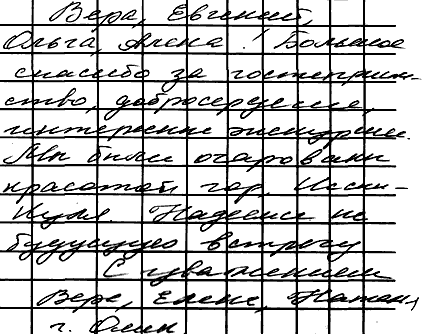 Вера, Евгений,
Ольга, Алена! Большое
спасибо за гостеприим-
ство, добросердечие,
интересные экскурсии.
Мы были очарованы
красотой гор, Иссык-
Куля. Надеемся на
будущую встречу
С уважением
Вера, Елена, Наталья
г. Омск